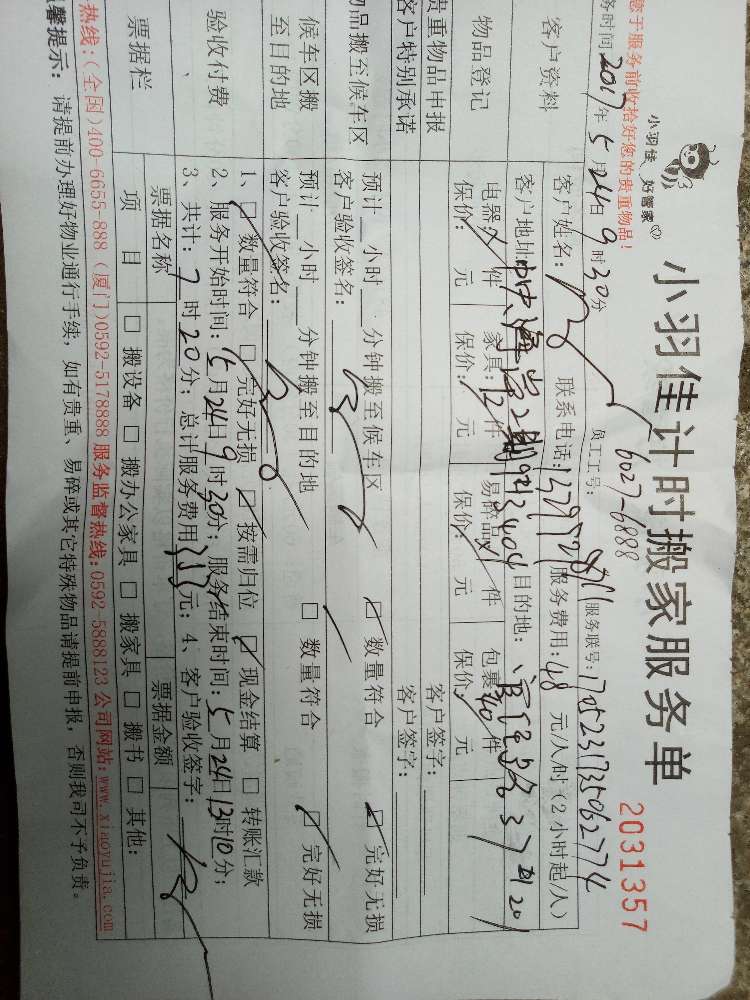 小羽佳 好管家
小羽佳计时搬家服务单
2031357
您于服务前收拾好您的贵重物品！
员工工号：6027-6888
服务联号：
务时间2017年5月24日9时30分
客户资料
客户姓名：
联系电话：
服务费用：48元/人/时（2小时起/人）
客户地址：
目的地：
物品登记
电器：件
家具：12件
易碎品：件
包裹：40件
保价：元
保价：元
保价：元
保价：元
贵重物品申报
客户签字：
客户特别承诺
客户签字：
物品搬至候车区
预计 小时 分钟搬至候车区
数量符合
完好无损
客户验收签名：
候车区搬至目的地
预计 小时 分钟搬至目的地
数量符合
完好无损
客户验收签名：
验收付费
1、数量符合 完好无损 按需归位 现金结算 转账汇款
2、服务开始时间：5月24日9时30分；服务结束时间：5月24日13时10分；
3、共计：7时20分；总计服务费用 元；4、客户验收签字：
票据栏
票据名称
票据金额
项目
搬设备 搬办公家具 搬家具 搬书 其他：
热线：（全国）400-6655-888（厦门）0592-5178888 服务监督热线：0592-5888123 公司网站：www.xiaoyujia.com
温馨提示：请提前办理好物业通行手续，如有贵重、易碎或其它特殊物品请提前申报，否则我司不予负责。